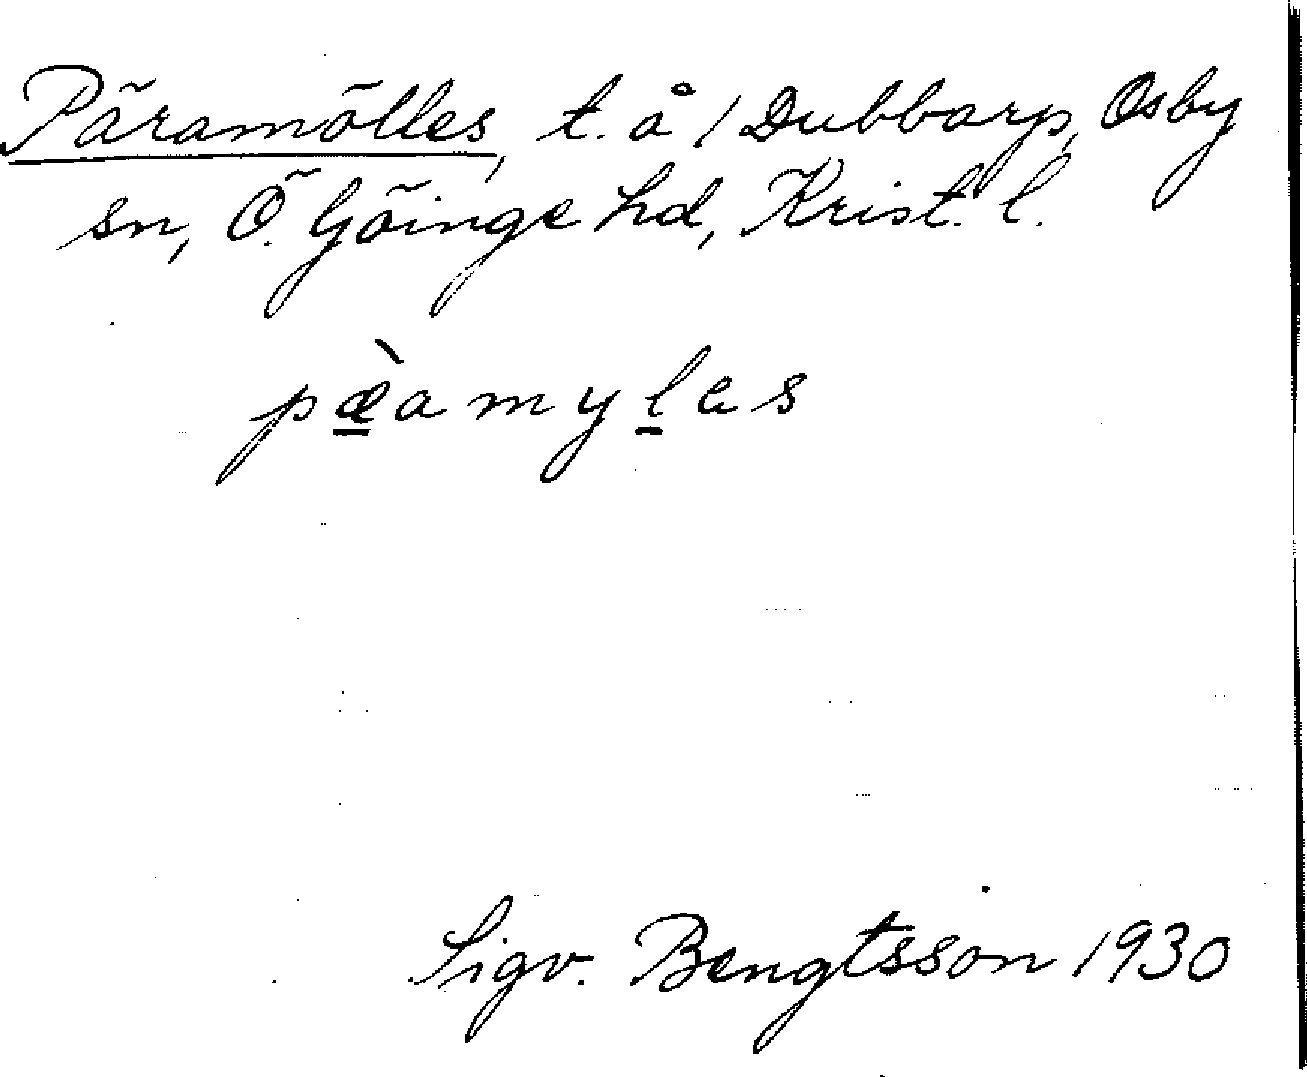 Päramölles, t. å 1 Dubbarp, Osby
sn, Ö. Göinge hd, Krist. l.
pæ̀amyles
Sigv. Bengtsson 1930